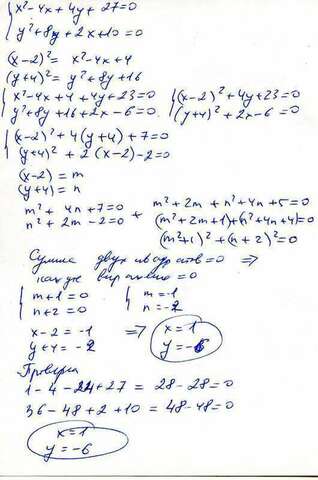 { x²-4x+4y+27=0
{ y²+8y+2x+10=0
(x-2)² = x²-4x+4
(y+4)² = y²+8y+16
{ x²-4x+4+4y+23=0 { (x-2)²+4y+23=0
{ y²+8y+16+2x-6=0 { (y+4)²+2x-6=0
{ (x-2)²+4(y+4)+7=0
{ (y+4)²+2(x-2)-2=0
(x-2) = m
(y+4) = n
m²+4n+7=0 + m²+2m+n²+4n+5=0
n²+2m-2=0 (m²+2m+1)+(n²+4n+4)=0
(m+1)²+(n+2)²=0
Сумма двух квадратов=0 ⇒
каждое выражение=0
{ m+1=0 { m=-1
{ n+2=0 { n=-2
x-2=-1 ⇒ x=1
y+4=-2 y=-6
Проверка
1-4-24+27 = 28-28=0
36-48+2+10 = 48-48=0
x=1
y=-6